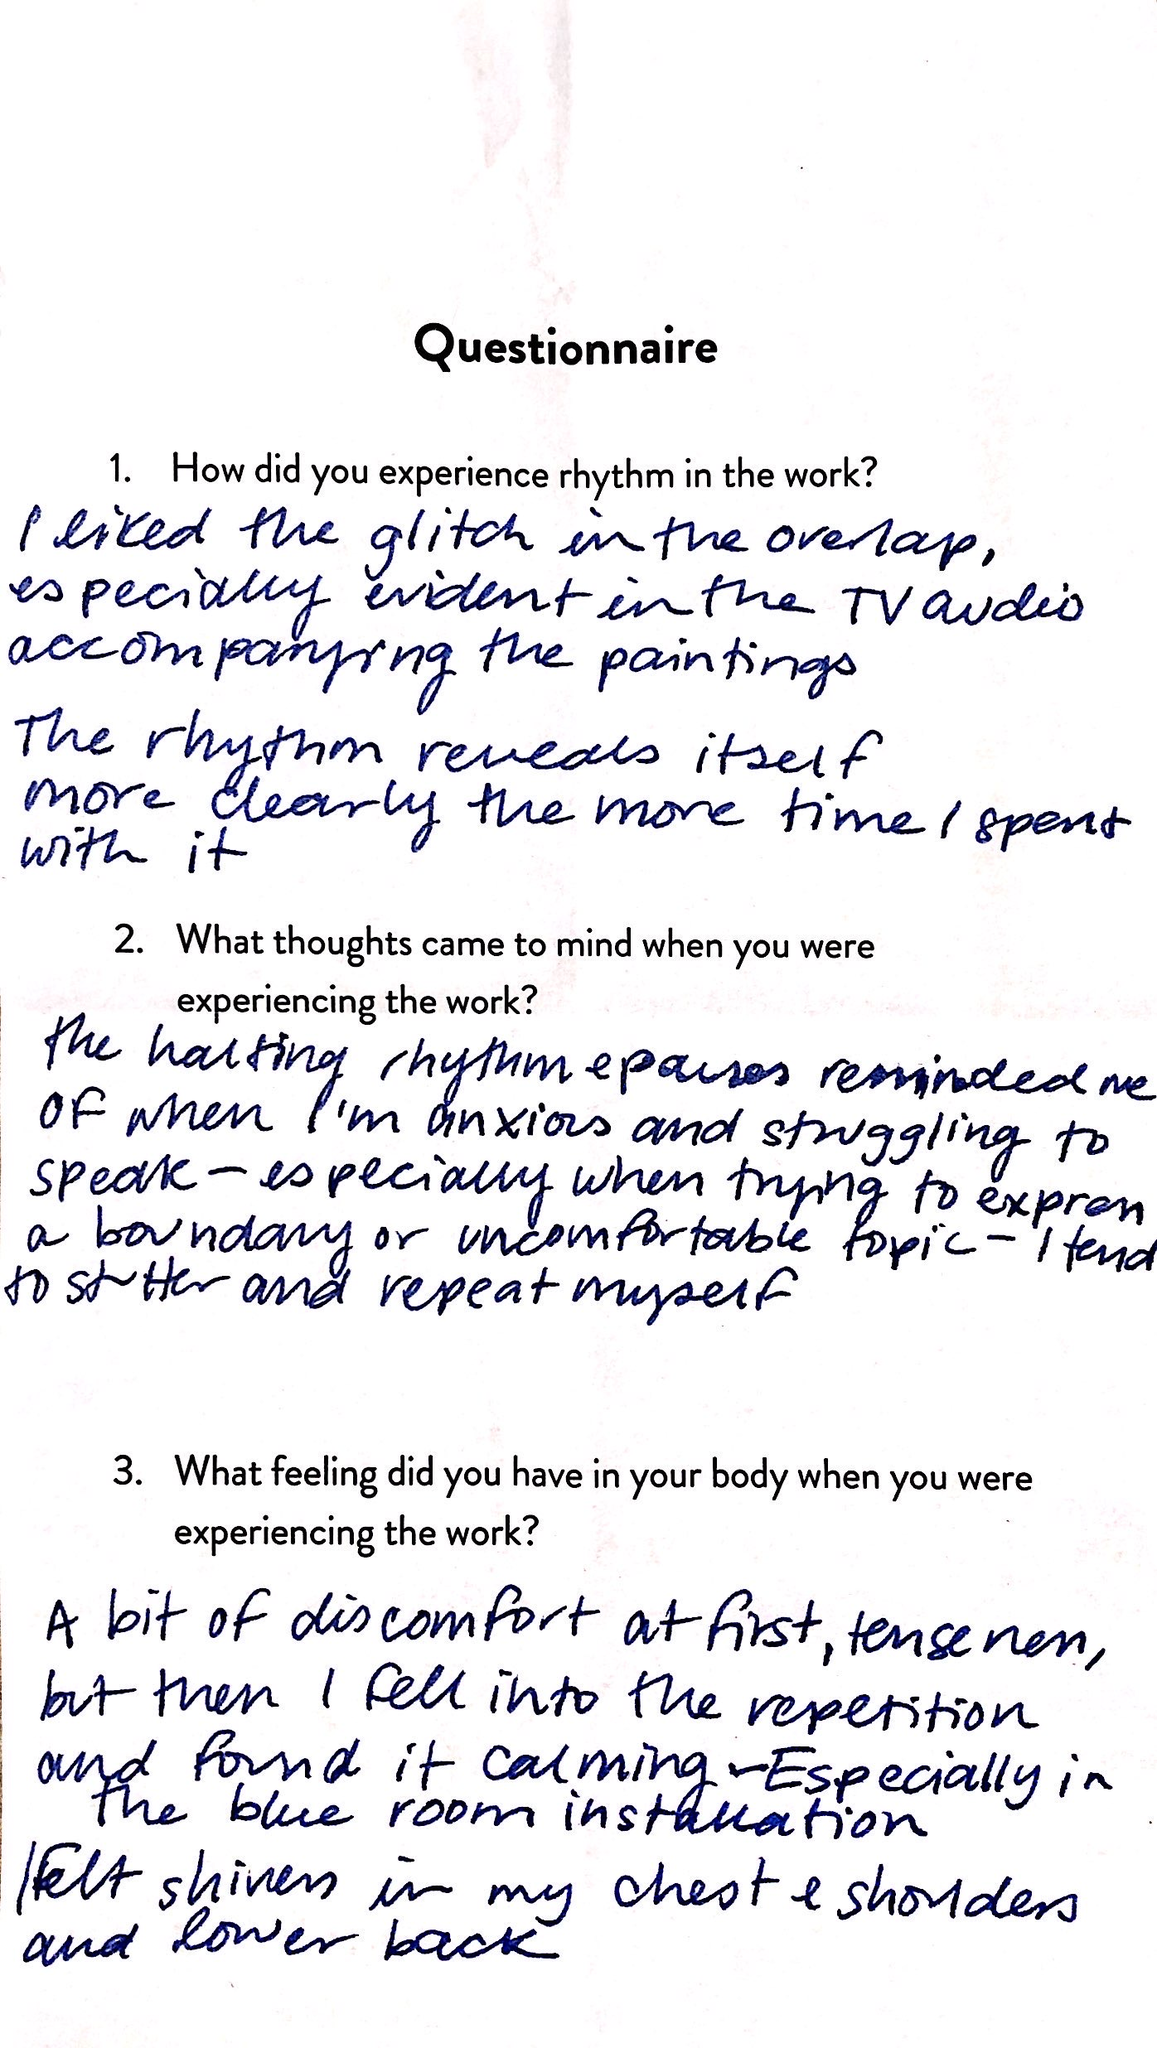 Questionnaire
1. How did you experience rhythm in the work?
I liked the glitch in the overlap,
especially evident in the TV audio
accompanying the paintings
The rhythm reveals itself
more clearly the more time I spent
with it
2. What thoughts came to mind when you were
experiencing the work?
the halting rhythm & pauses reminded me
of when I'm anxious and struggling to
speak – especially when trying to express
a boundary or uncomfortable topic – I tend
to stutter and repeat myself
3. What feeling did you have in your body when you were
experiencing the work?
A bit of discomfort at first, tenseness,
but then I fell into the repetition
and found it calming – Especially in
the blue room installation
I felt shivers in my chest & shoulders
and lower back